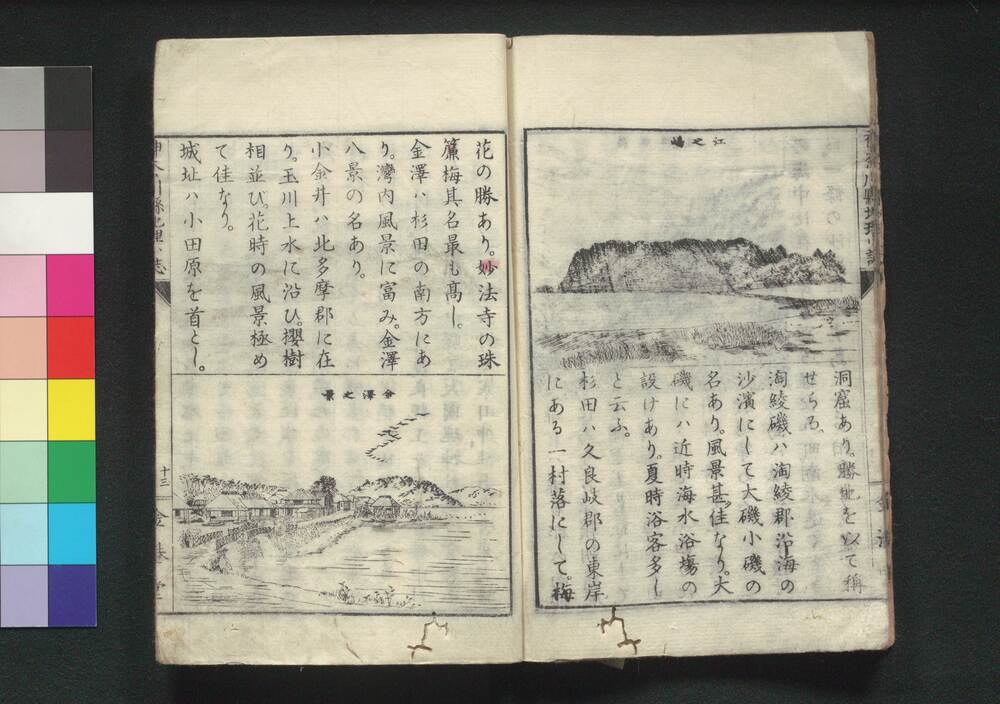 江之嶋
洞窟あり。勝地を以て稱
せらる、
淘綾磯ハ淘綾郡沿海の
沙濱にして大磯小磯の
名あり。風景甚佳なり。大
磯にハ近時海水浴塲の
設けあり。夏時浴客多し
と云ふ。
杉田ハ久良岐郡の東岸
にある一村落にして。梅
花の勝あり。妙法寺の珠
簾梅其名最も髙し。
金澤ハ杉田の南方にあ
り。灣内風景に富み。金澤
八景の名あり。
小金井ハ北多摩郡に在
り。玉川上水に沿ひ。櫻樹
相並び。花時の風景極め
て佳なり。
城址ハ小田原を首とし。
金澤之景
神奈川縣地理小誌
十三